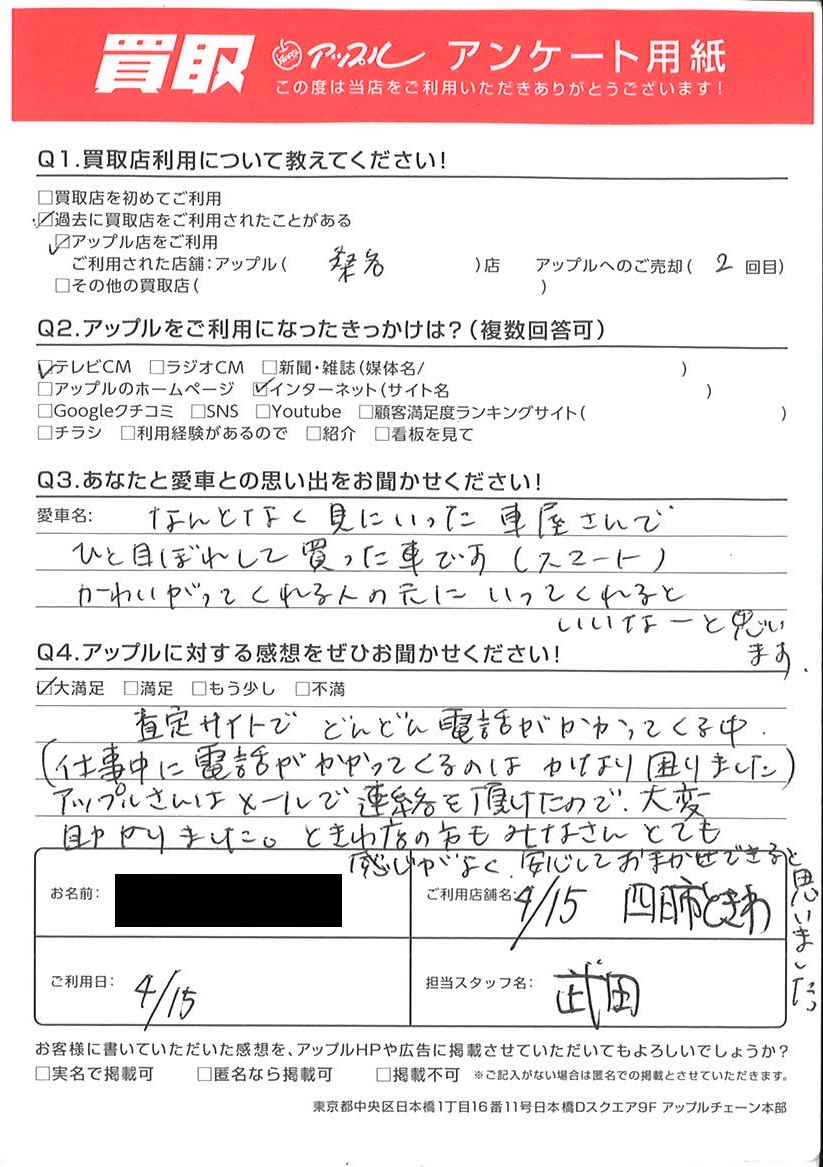 買取 アップル アンケート用紙
この度は当店をご利用いただきありがとうございます!
Q1.買取店利用について教えてください!
□買取店を初めてご利用
☑過去に買取店をご利用されたことがある
☑アップル店をご利用
ご利用された店舗:アップル( 桑名 )店 アップルへのご売却( 2 回目)
□その他の買取店( )
Q2.アップルをご利用になったきっかけは?(複数回答可)
☑テレビCM □ラジオCM □新聞・雑誌(媒体名/ )
□アップルのホームページ ☑インターネット(サイト名 )
□Googleクチコミ □SNS □Youtube □顧客満足度ランキングサイト( )
□チラシ □利用経験があるので □紹介 □看板を見て
Q3.あなたと愛車との思い出をお聞かせください!
愛車名: なんとなく見にいった車屋さんで
ひと目ぼれして買った車です(スマート)
かわいがってくれる人の元にいってくれると
いいなーと思い
ます.
Q4.アップルに対する感想をぜひお聞かせください!
☑大満足 □満足 □もう少し □不満
査定サイトでどんどん電話がかかってくる中.
(仕事中に電話がかかってくるのはかなり困りました)
アップルさんはメールで連絡を頂けたので、大変
助かりました。ときわ店の方もみなさんとても
感じがよく、安心しておまかせできると
思いました
お名前:
ご利用店舗名: 4/15 四日市ときわ
ご利用日: 4/15
担当スタッフ名: 武田
お客様に書いていただいた感想を、アップルHPや広告に掲載させていただいてもよろしいでしょうか?
□実名で掲載可 □匿名なら掲載可 □掲載不可 ※ご記入がない場合は匿名での掲載とさせていただきます。
東京都中央区日本橋1丁目16番11号日本橋Dスクエア9F アップルチェーン本部